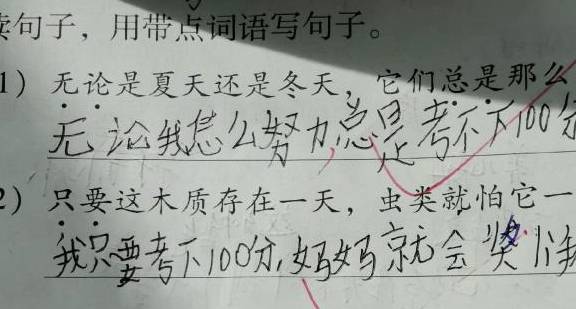 读句子，用带点词语写句子。
1）无论是夏天还是冬天，它们总是那么
无论我怎么努力，总是考不下100分
2）只要这木质存在一天，虫类就怕它一
我只要考下100分，妈妈就会奖